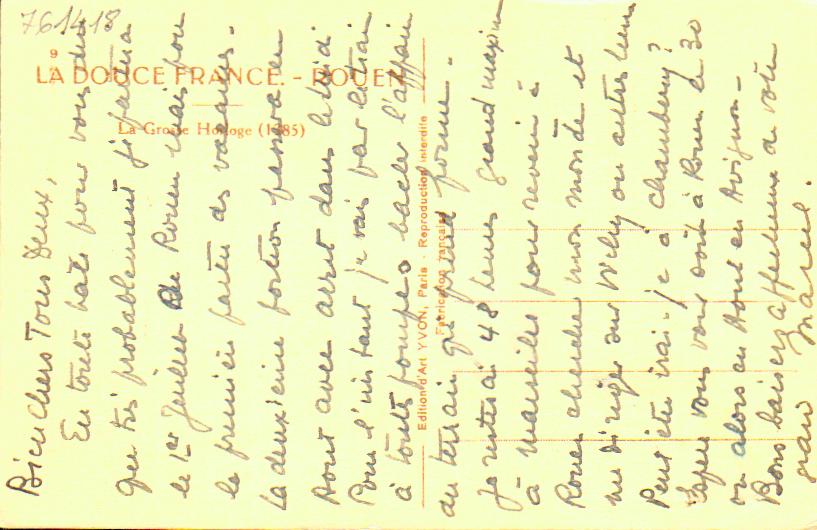 761418
9
LA DOUCE FRANCE. - ROUEN
La Grosse Horloge (1485)
Edition d'Art YVON, Paris - Reproduction interdite
Fabrication française
Bien Chers Tous Deux,
En toute hâte pour vous dire
que très probablement je
le 1er Juillet de Rouen mais pour
la première partie des vacances.
La deuxième portion passera en
Aout avec arrêt dans le Midi
Pour l'instant je vais par le train
à toute pompe bacler l'affaire
du terrain qui prend forme.
Je resterai 48 heures grand maxim
à Marseille pour revenir à
Rouen chercher mon monde et
me diriger sur ou autres lieux
Peut être irai-je à Chambéry?
vous voir soit à Rouen le 30
ou alors en Aout en Avignon -
Bons baisers affectueux de votre
grand Marcel.